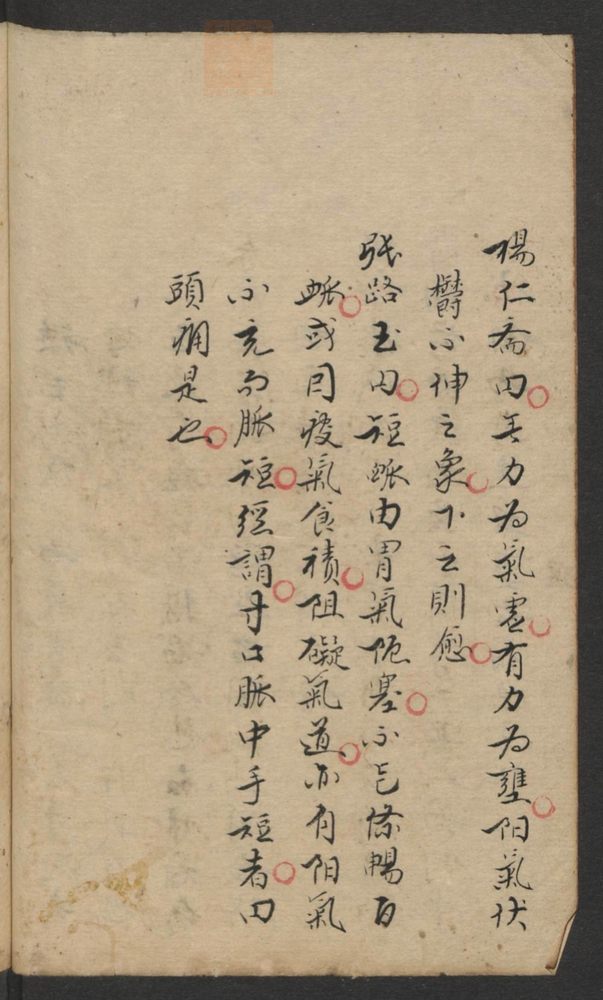 楊仁斎曰无力為氣虛有力為壅阳氣伏
欝不伸之象下之則愈
張路玉曰短脈由胃氣阨塞不能條暢百
脈或因痰氣食積阻礙氣道亦有阳氣
不充而脈短經謂寸口脈中手短者曰
頭痛是也